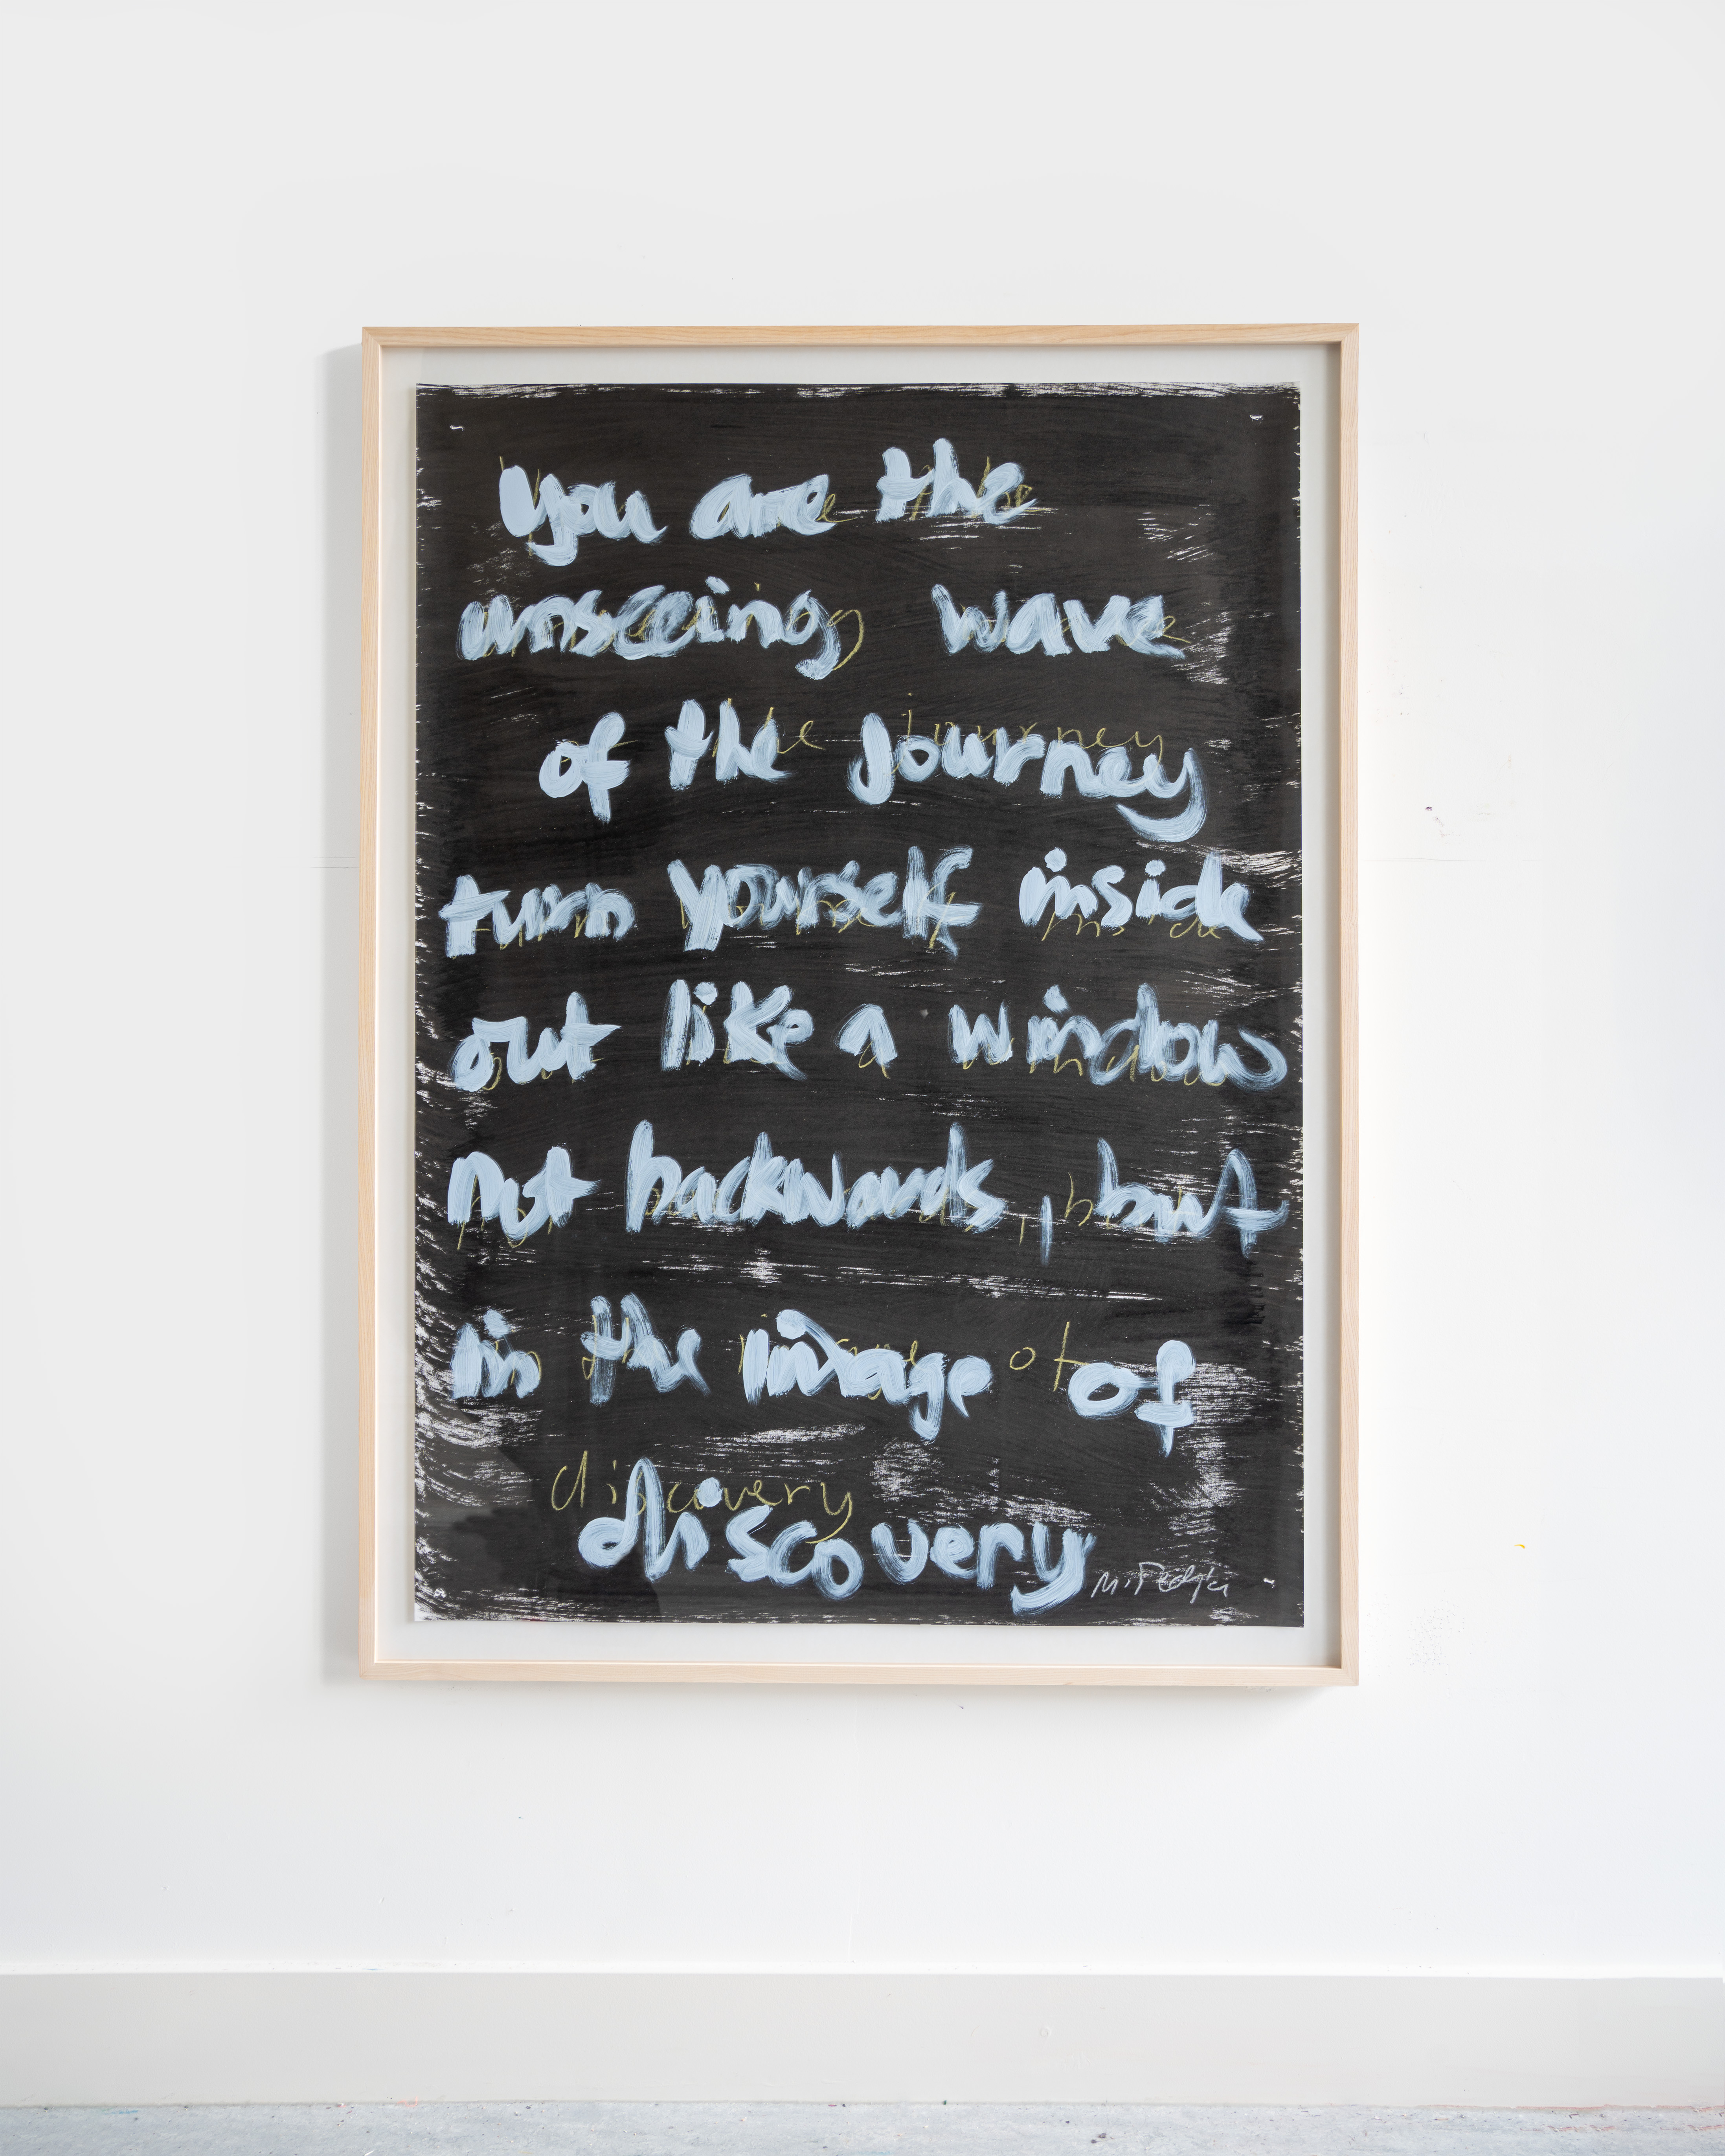 you are the
unseeing wave
of the journey
turn yourself inside
out like a window
not backwards, but
in the image of
discovery